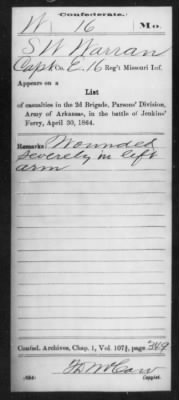 Confederate.
W 16 Mo.
S W Warran
Capt Co. E, 16 Reg't Missouri Inf.
Appears on a
List
of casualties in the 2d Brigade, Parsons' Division,
Army of Arkansas, in the battle of Jenkins'
Ferry, April 30, 1864.
Remarks: Wounded
severely in left
arm
Confed. Archives, Chap. 1, Vol. 107½, page 349
Copyist.